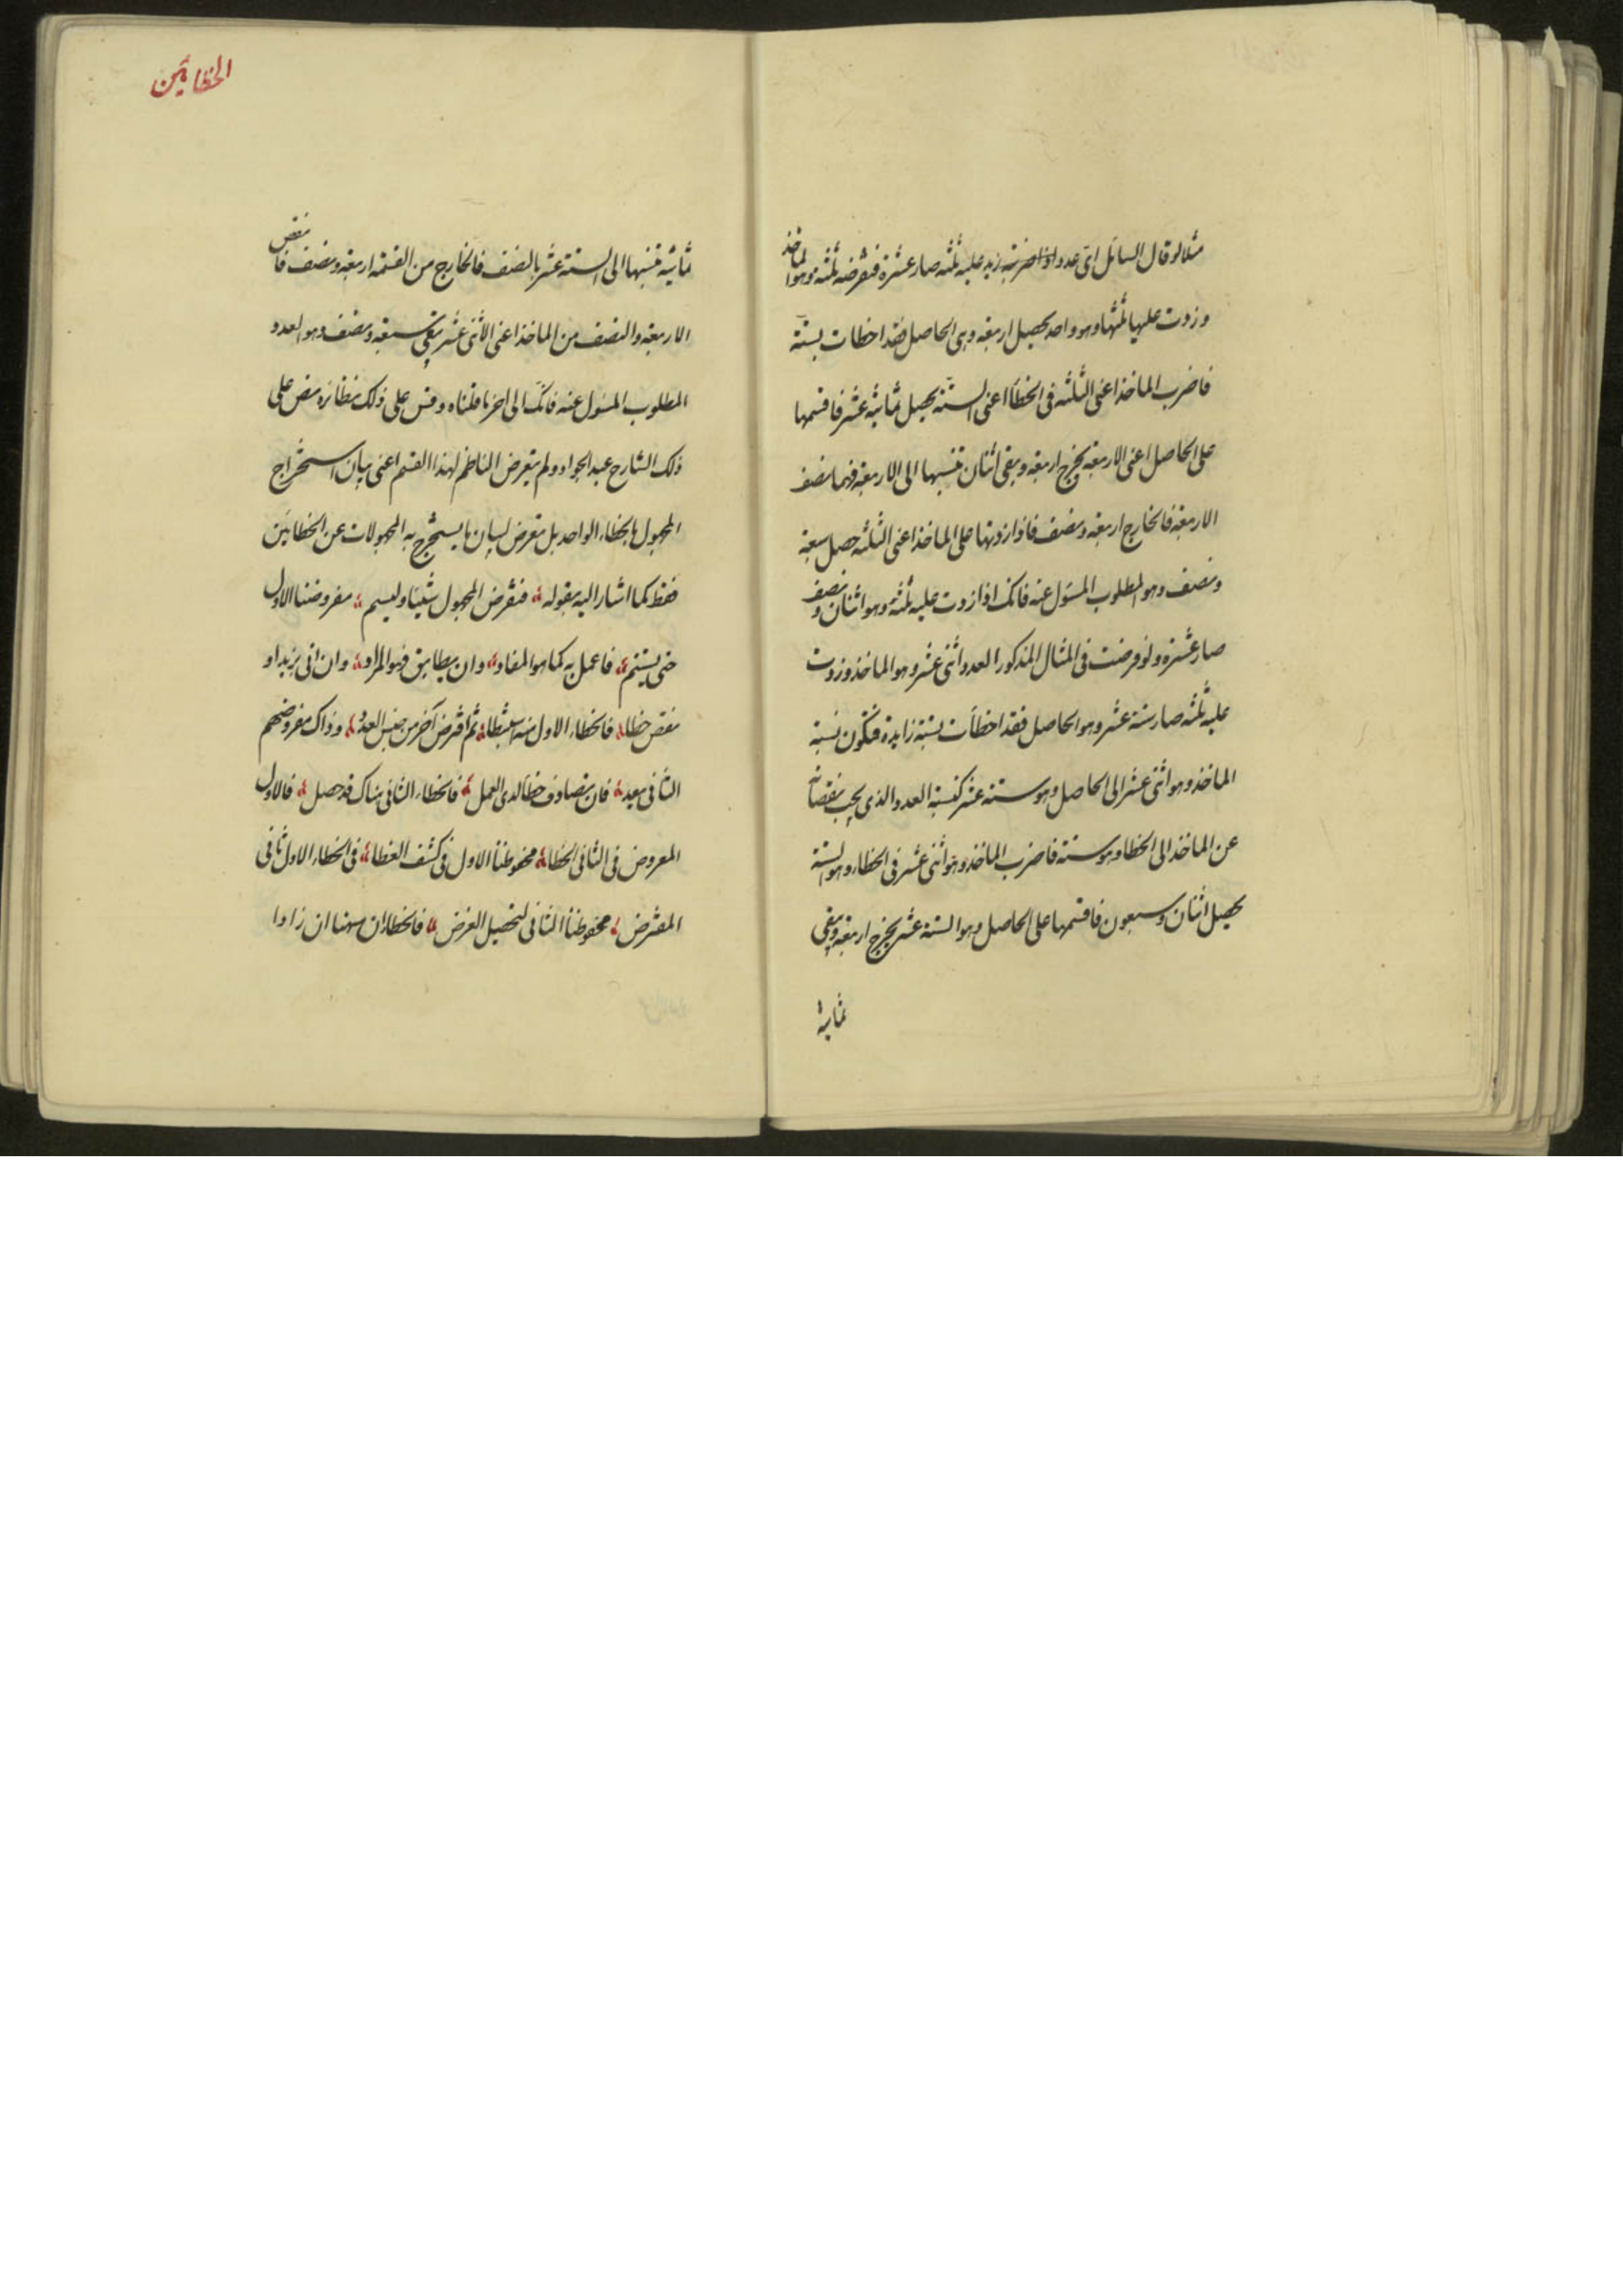 مثلا لو قال السائل اى عدد اذا ضربته زيد عليه ثلثه صار عشرة فنفرضه ثلثه وهو الماخذ
وزدت عليها ثلثها وهو واحد يحصل اربعة وهى الحاصل فقد اخطات بستة
فاضرب الماخذ اعنى الثلثه فى الخطأ اعنى الستة يحصل ثمانية عشر فاقسمها
على الحاصل اعنى الاربعة يخرج اربعة ويبقى اثنان تنسبها الى الاربعة فهما نصف
الاربعة فالخارج اربعة ونصف فاذا زدتها على الماخذ اعنى الثلثه حصل سبعة
ونصف وهو المطلوب المسئول عنه فانك اذا زدت عليه ثلثه وهو اثنان ونصف
صار عشرة ولو فرضت فى المثال المذكور العدد اثنى عشر وهو الماخذ وزدت
عليه ثلثه صار ستة عشر وهو الحاصل فقد اخطأت بستة زايدة فتكون نسبة
الماخذ وهو اثنى عشر الى الحاصل وهو ستة عشر كنسبة العدد الذى يجب نقصانه
عن الماخذ الى الخطا وهو ستة فاضرب الماخذ وهو اثنى عشر فى الخطاء وهو الستة
يحصل اثنان وسبعون فاقسمها على الحاصل وهو الستة عشر يخرج اربعة ويبقى
ثمانية
الخطايئن
ثمانية تنسبها الى الستة عشر بالنصف فالخارج من القسمة اربعة ونصف فانقص
الاربعة والنصف من الماخذ اعنى الاثنى عشر يبقى سبعة ونصف وهو العدد
المطلوب المسئول عنه فانك الى اخر ما قلناه وقس على ذلك نظائره نص على
ذلك الشارح عبد الجواد ولم يتعرض الناظم لهذا القسم اعنى بيان استخراج
المجهول بالخطاء الواحد بل تعرض لبيان ما يستخرج به المجهولات عن الخطايئن
فقط كما اشار اليه بقوله فنفرض المجهول شيئا وليسم مفروضنا الاول
حتى يستتم فاعمل به كما هو المفاد وان يطابق فهو المراد وان اتى يزيد او
نقص خطا فالخطاء الاول منه ثم افرض آخر من جنس العدد وذاك مفروضهم
الثانى يعد فان تصادف خطأ لدى العمل فالخطاء الثانى هناك قد حصل فالاول
المعروض فى الثانى الخطا محفوظنا الاول فى كشف الغطا فى الخطاء الاول ثانى
المفترض محفوظنا الثانى لتحصيل الغرض فالخطاءان ههنا ان زادا